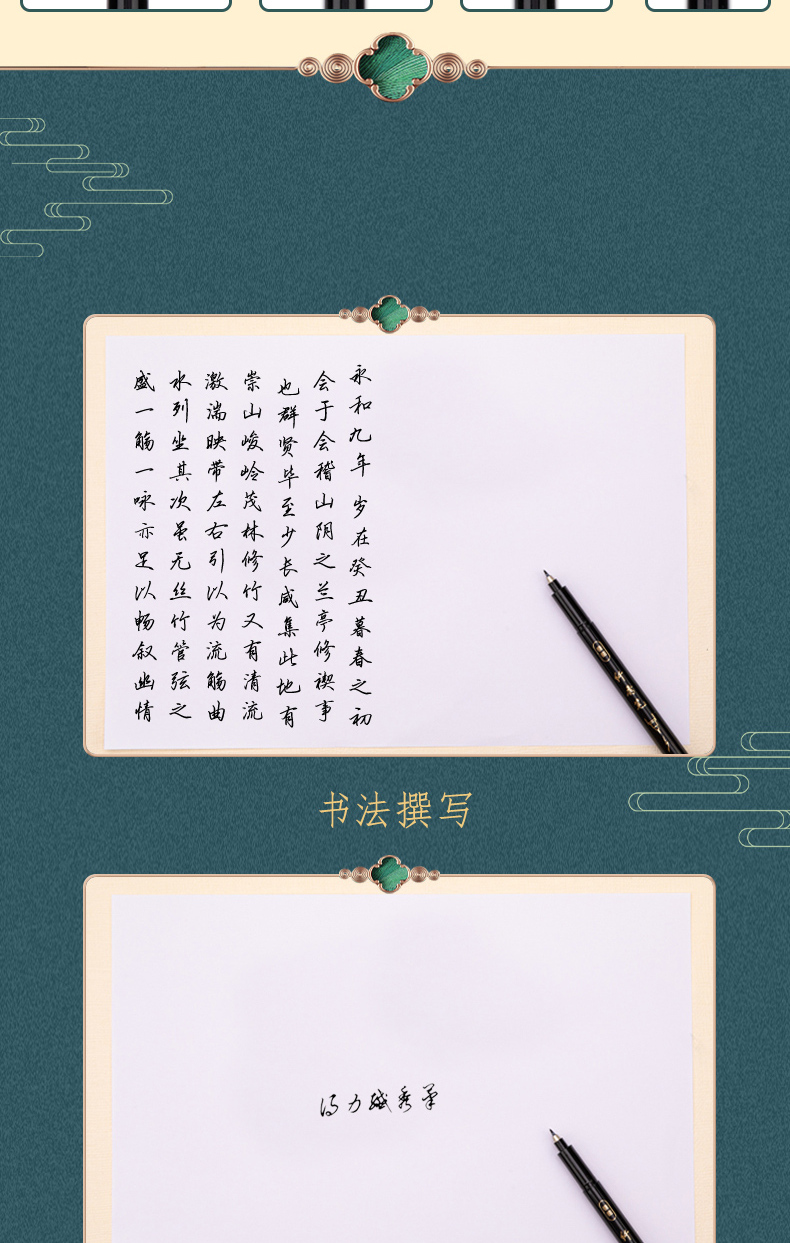 永和九年岁在癸丑暮春之初
会于会稽山阴之兰亭修禊事
也群贤毕至少长咸集此地有
崇山峻岭茂林修竹又有清流
激湍映带左右引以为流觞曲
水列坐其次虽无丝竹管弦之
盛一觞一咏亦足以畅叙幽情
书法撰写
得力 秀笔